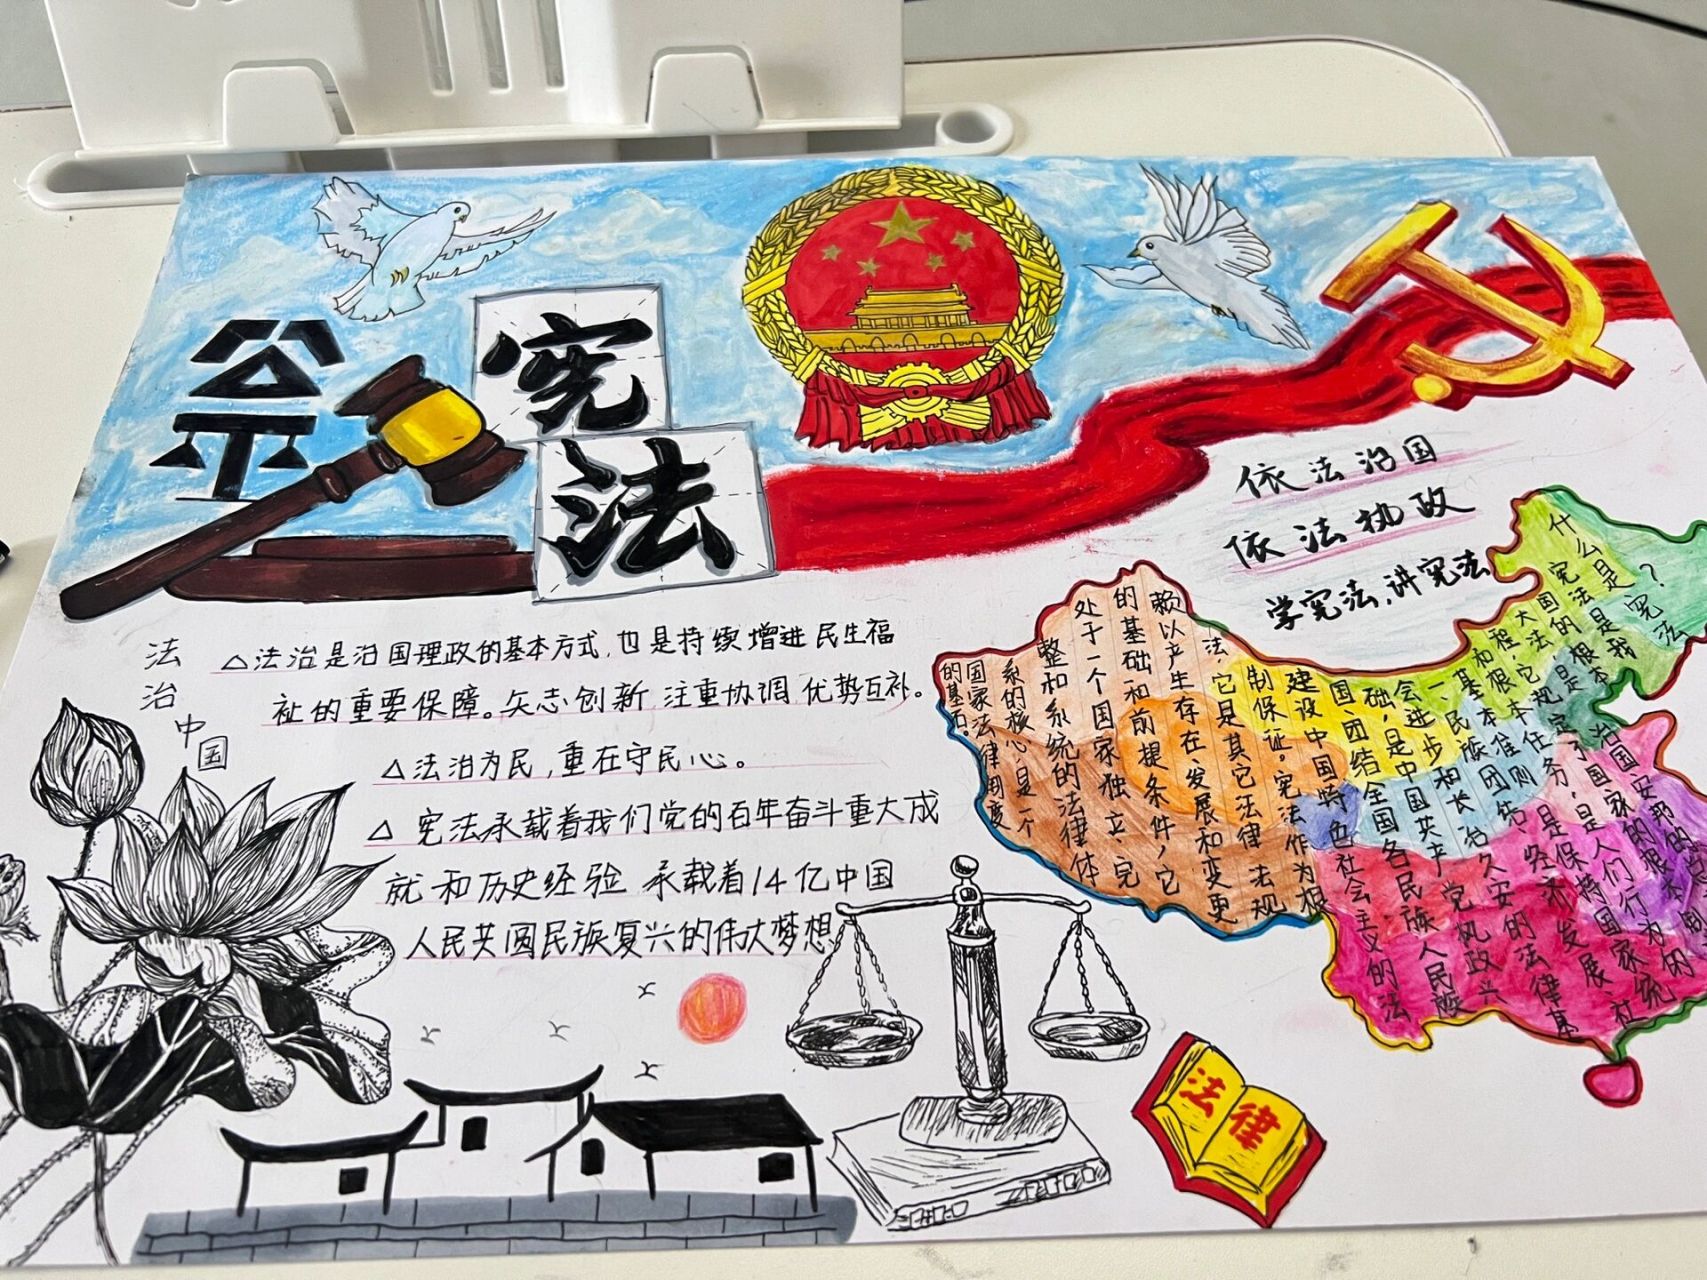 公平
宪法
依法治国
依法执政
学宪法,讲宪法
法治中国
△法治是治国理政的基本方式,也是持续增进民生福
祉的重要保障。矢志创新 注重协调 优势互补。
△法治为民,重在守民心。
△宪法承载着我们党的百年奋斗重大成
就和历史经验 承载着14亿中国
人民共圆民族复兴的伟大梦想
什么是宪法?
宪法是我
国的根本
大法,它是治国安邦的
程,它规定了国家的根本
和根本任务,是人们行为的
基本准则,是保持国家统
一、民族团结、经济发展、社
会进步和长治久安的法律基
础,是中国共产党执政兴
国、团结全国各民族人民
建设中国特色社会主义的法
制保证。宪法作为根
法,它是其它法律 法规
赖以产生存在、发展和变更
的基础和前提条件,它
处于一个国家独立、完
整和系统的法律体
系的核心,是一个
国家法律制度
的基石。
法律